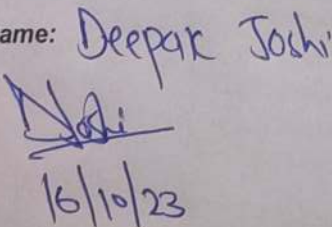 ame: Deepak Joshi
DJoshi
16/10/23